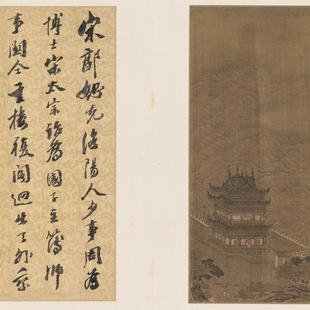 宋郭恕先洛陽人少事周為
博士宋太宗詔為國子主簿師
事關仝重樓複閣迥出